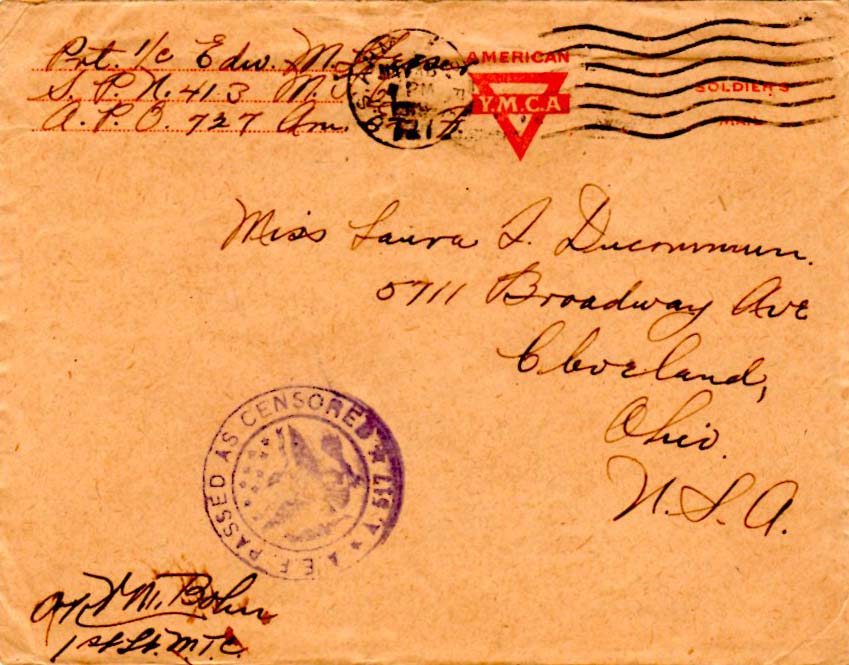 Pvt. 1/c Edw. M.
S. P. U. 413 M.
A. P. O. 727 Am.
AMERICAN
Y.M.C.A
SOLDIER'S
MAIL
Miss Laura I. Ducommun.
5711 Broadway Ave
Cleveland,
Ohio.
U. S. A.
A.E.F. PASSED AS CENSORED
OK
M. Bohn
1st Lt. M.T.C.